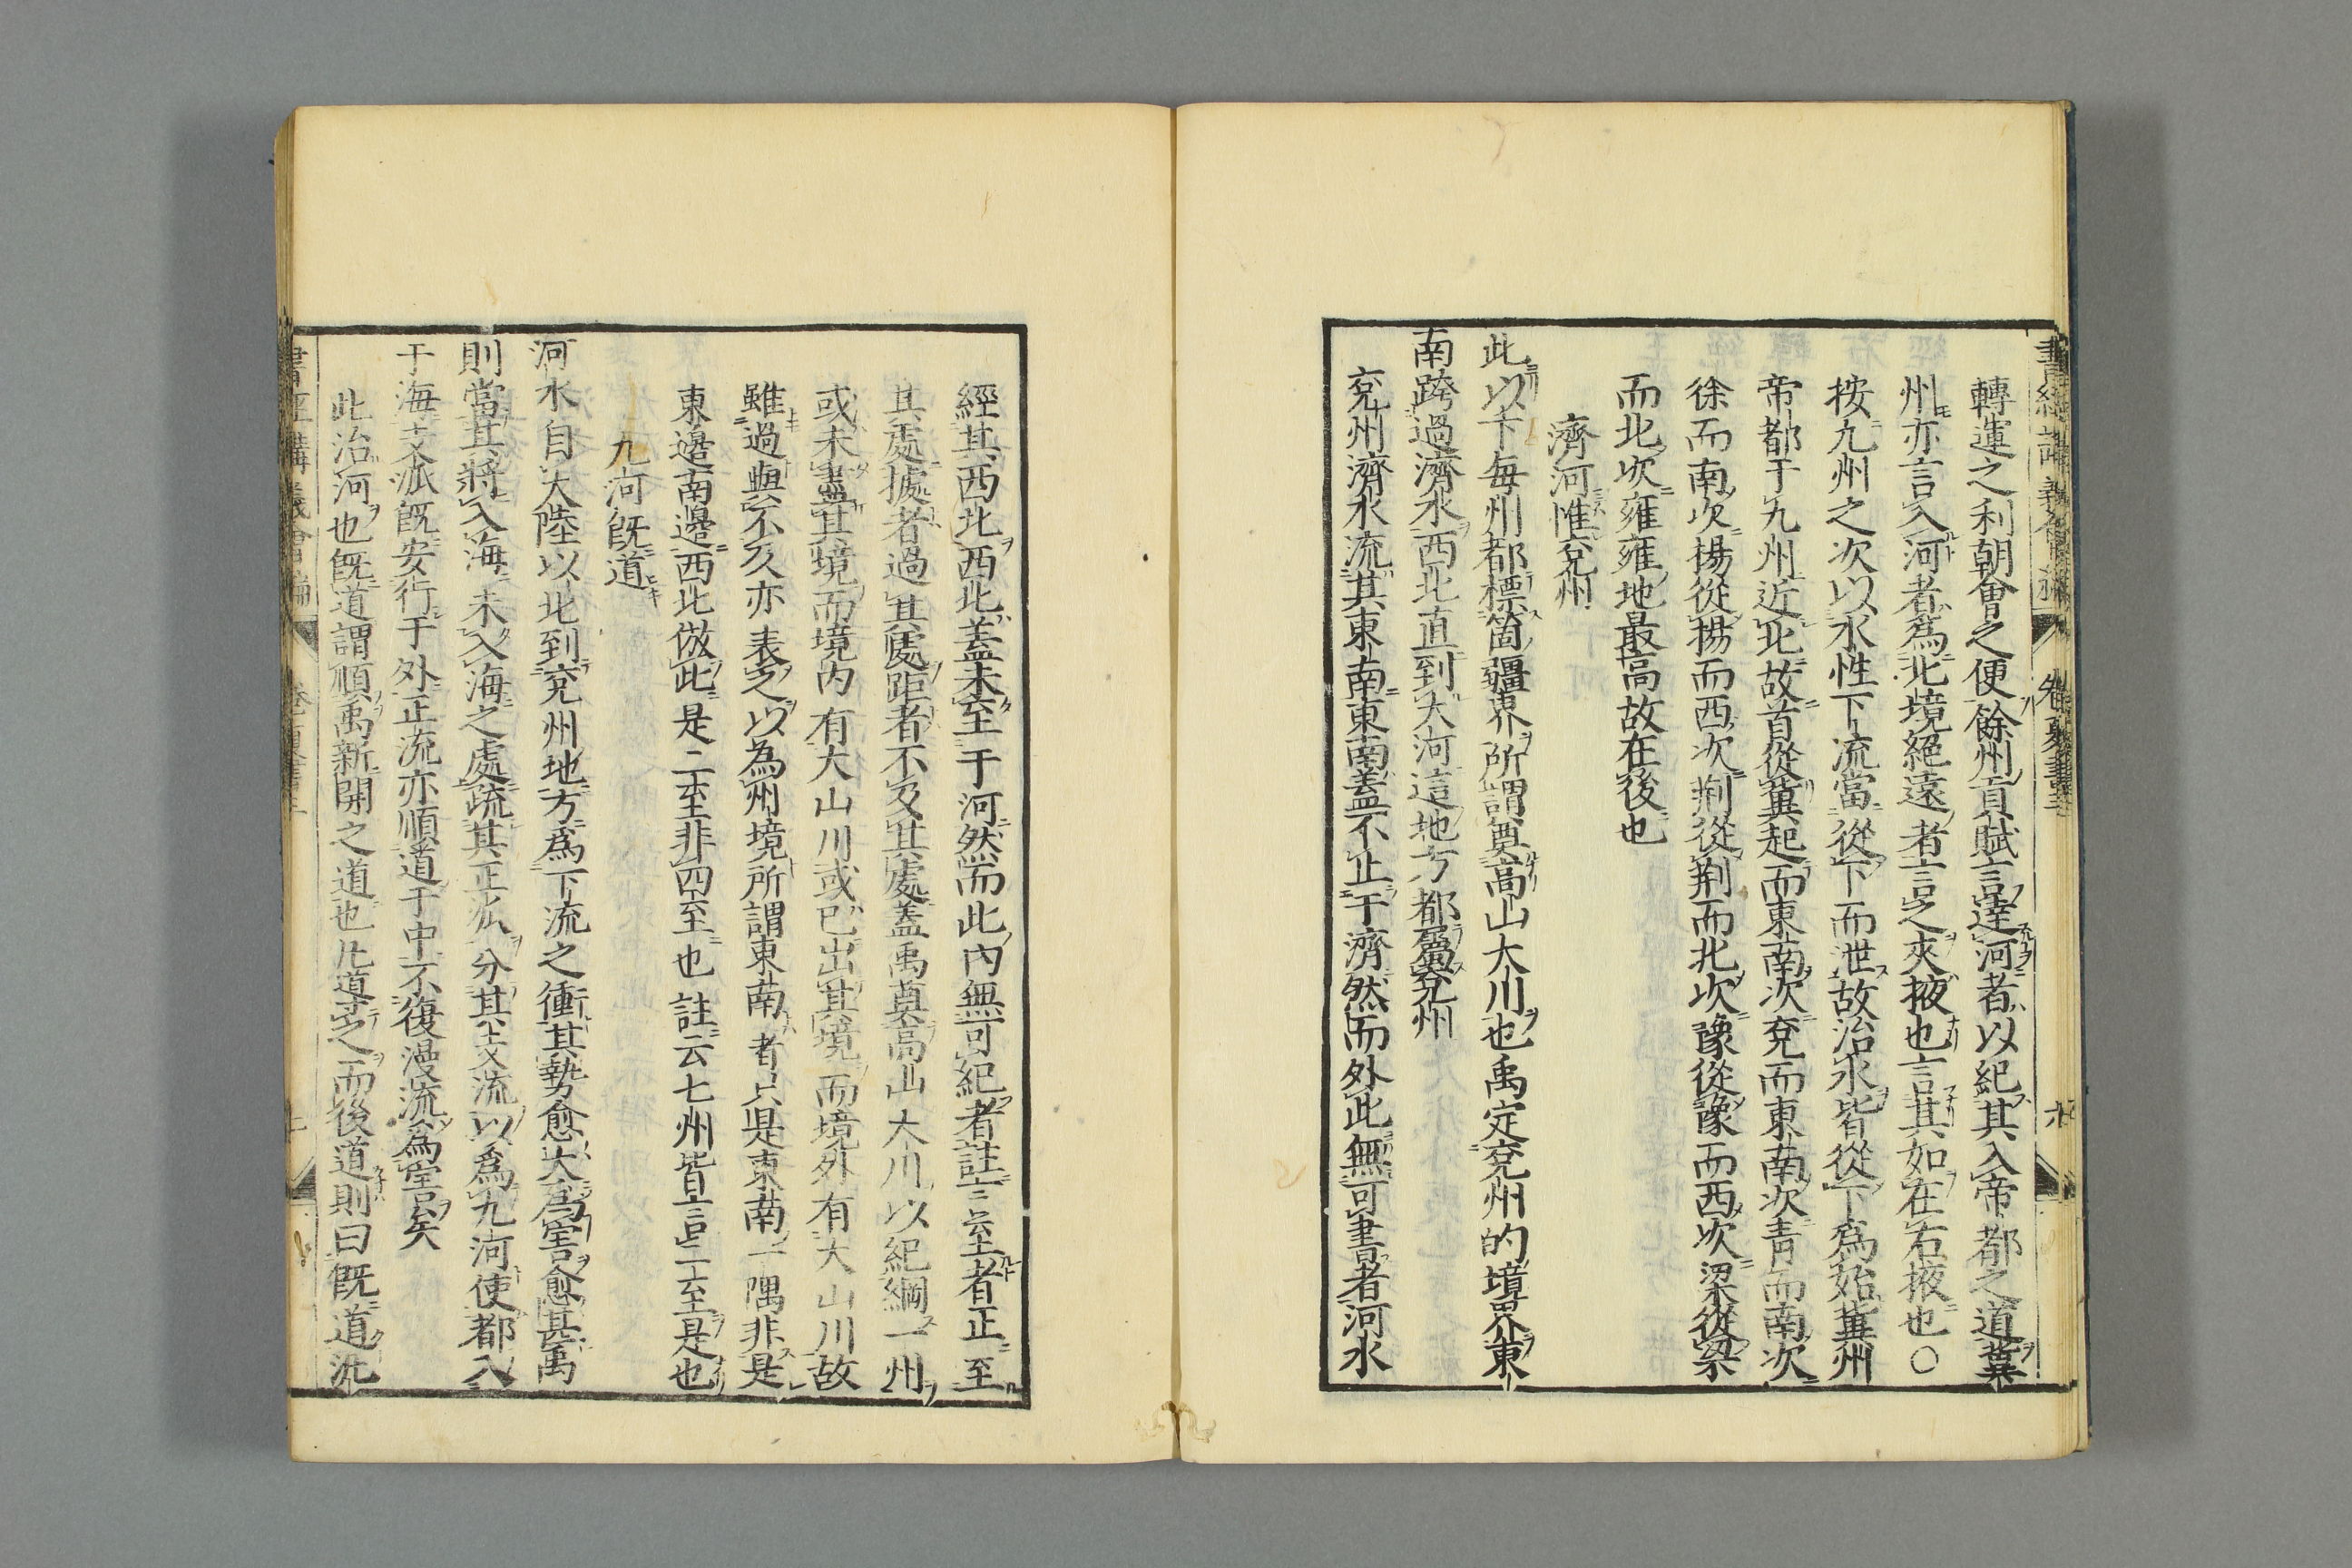 轉運之利朝會之便餘州貢賦言達河者以紀其入帝都之道冀
州亦言入河者爲北境絕遠者言之夾掖也言其如在右掖也〇
按九州之次以水性下流當從下而泄故治水皆從下爲始冀州
帝都于九州近北故首從冀起而東南次兗而東南次青而南次
徐而南次揚從揚而西次荊從荊而北次豫從豫而西次梁從梁
而北次雍雍地最高故在後也
濟河惟兗州
此以下每州都標箇疆界所謂奠高山大川也禹定兗州的境界東
南跨過濟水西北直到大河這地方都屬兗州
兗州濟水流其東南東南蓋不止于濟然而外此無可書者河水
經其西北西北蓋未至于河然而此內無可紀者註云至者正至
其處據者過其處距者不及其處蓋禹奠高山大川以紀綱一州
或未盡其境而境內有大山川或已出其境而境外有大山川故
雖過與不及亦表之以為州境所謂東南者只是東南一隅非是
東邊南邊西北倣此是二至非四至也註云七州皆言二至是也
九河既道
河水自大陸以北到兗州地方爲下流之衝其勢愈大爲害愈甚禹
則當其將入海未入海之處疏其正派分其支流以爲九河使都入
于海支派既安行于外正流亦順道于中不復漫流爲害矣
此治河也既道謂順禹新開之道也凡道之而後道則曰既道沇
書經講義會編
卷
夏書
六